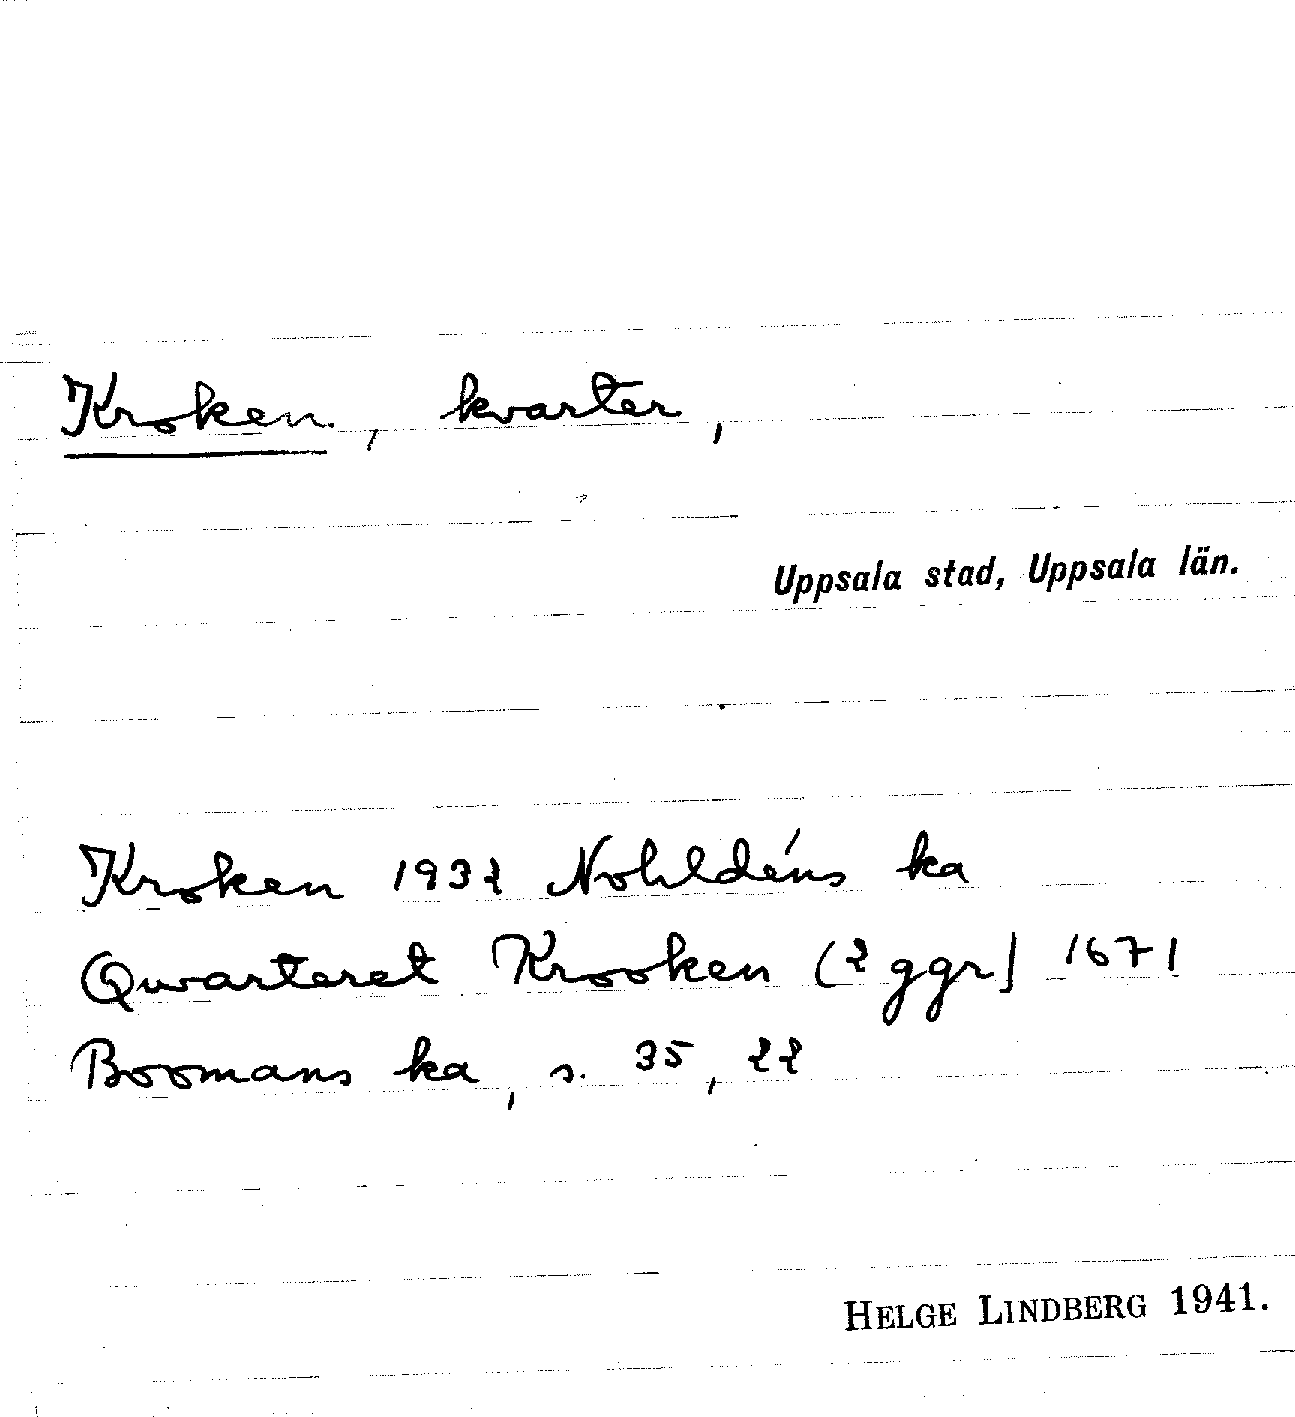 Kroken, kvarter,
Uppsala stad, Uppsala län.
Kroken 1932 Nohldéns ka
Qwarteret Krooken (2 ggr) 1671
Boomans ka, s. 35, 22
HELGE LINDBERG 1941.